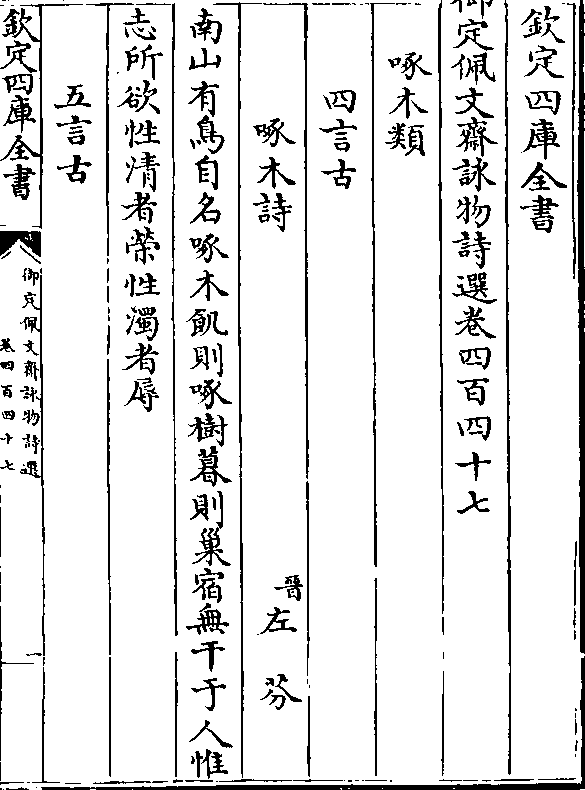 欽定四庫全書
御定佩文齋詠物詩選卷四百四十七
啄木類
四言古
啄木詩
晉左芬
南山有鳥自名啄木飢則啄樹暮則巢宿無干于人惟
志所欲性清者榮性濁者辱
五言古
欽定四庫全書
御定佩文齋詠物詩選
卷四百四十七
一